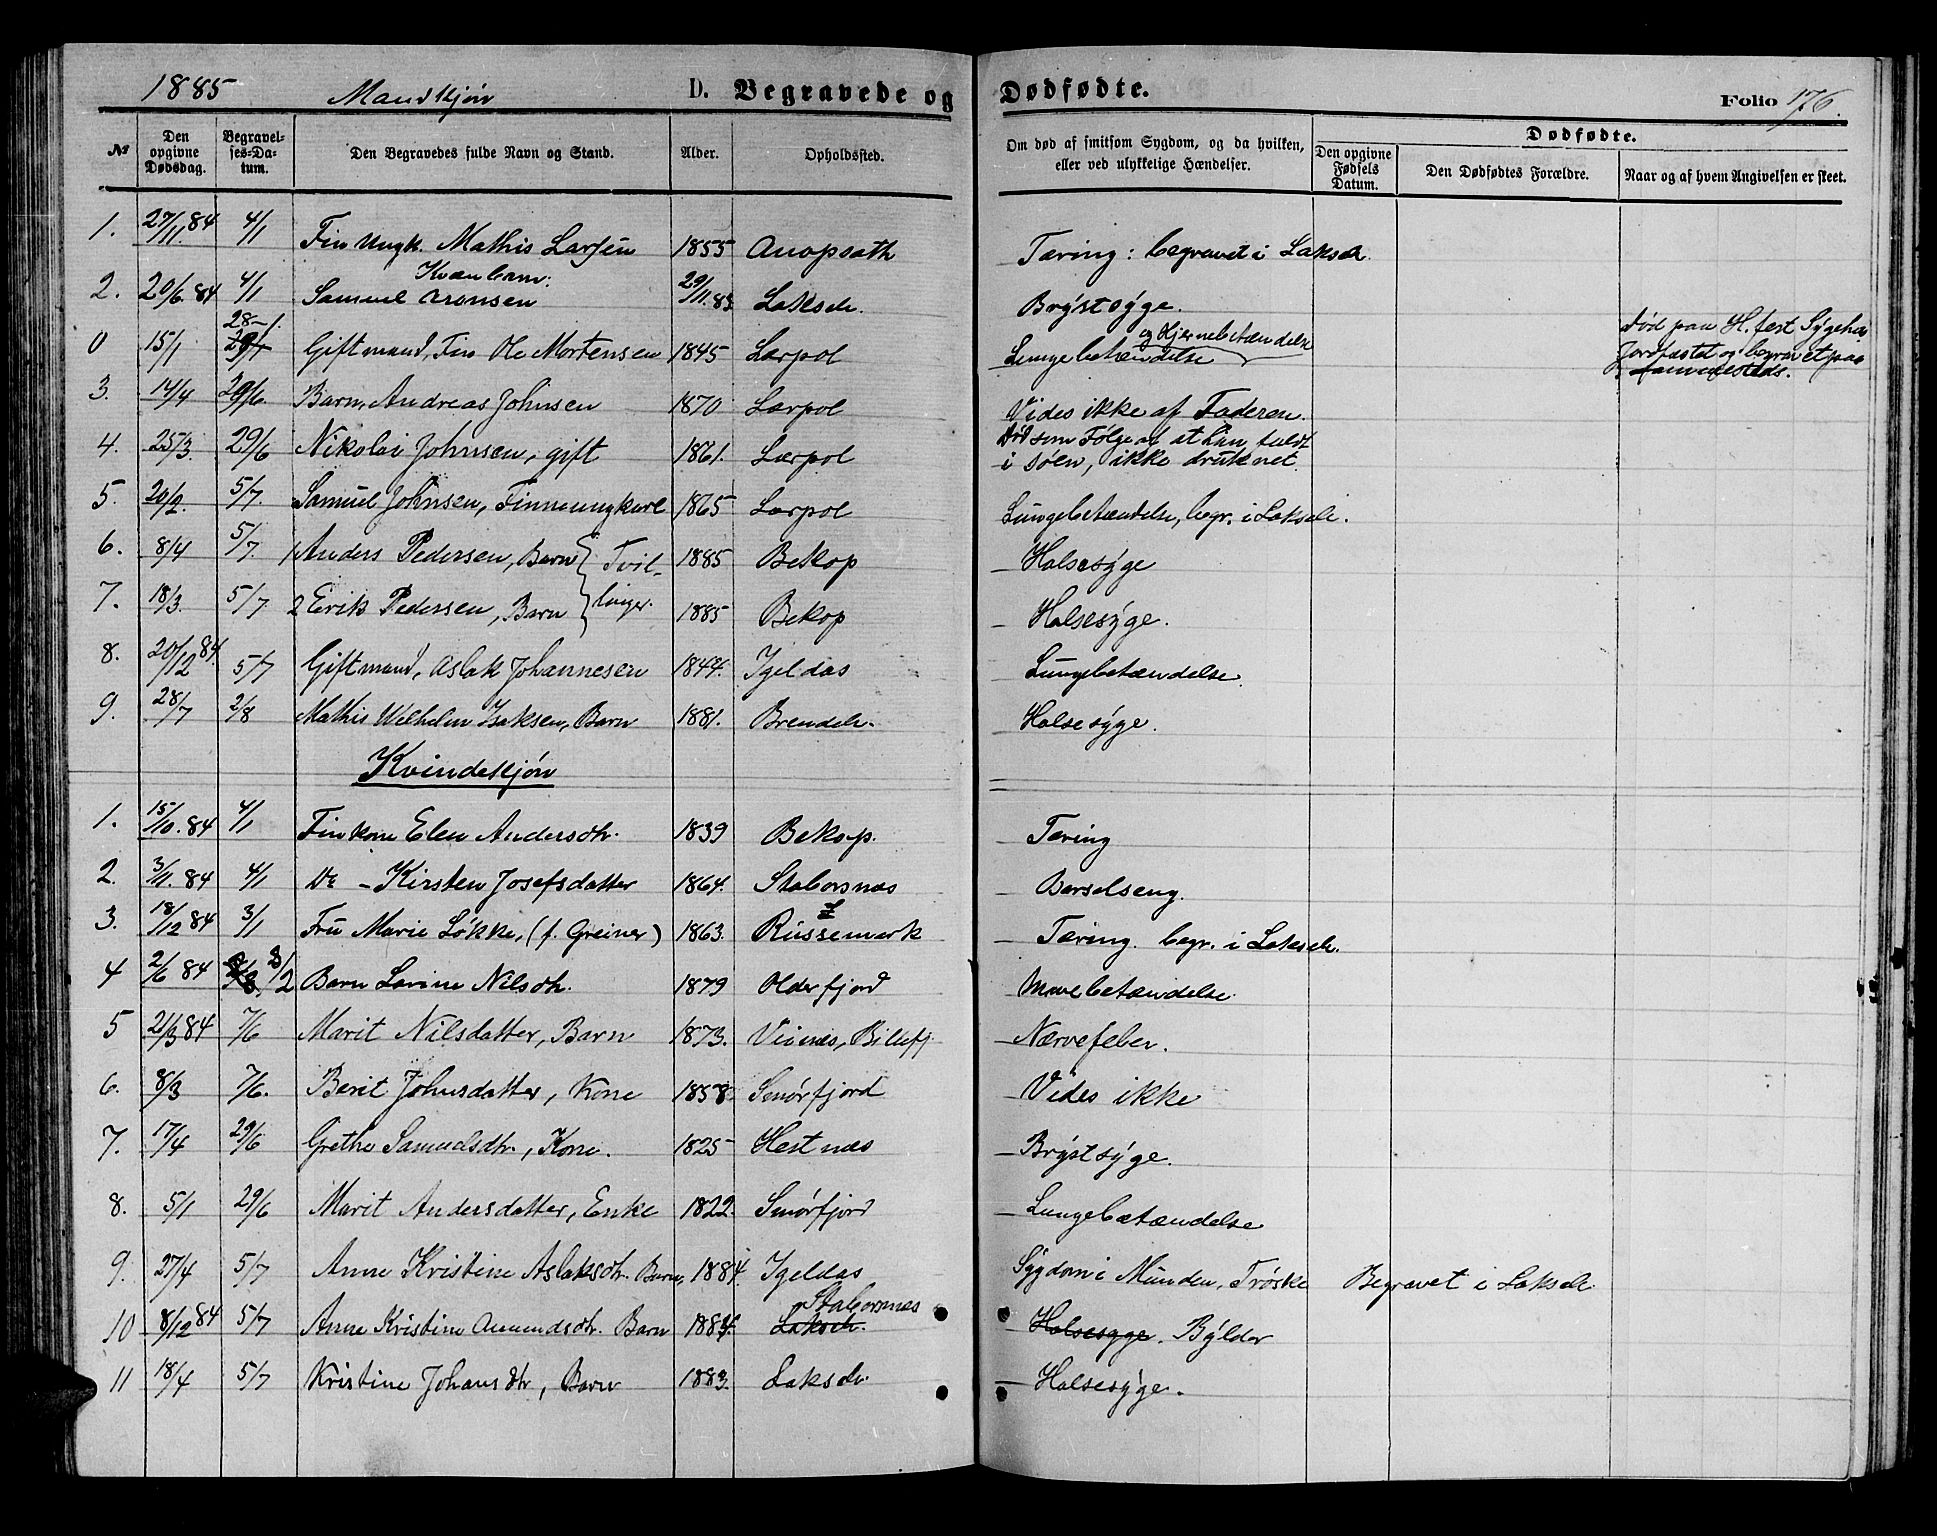 1885 Mandkjøn D. Begravede og Dødfødte. Folio 176.
№ Den opgivne Dødsdag. Begravelses-Datum. Den Begravedes fulde Navn og Stand. Alder. Opholdssted. Om død af smitsom Sygdom, og da hvilken, eller ved ulykkelige Hændelser. Dødfødte. Den opgivne Fødsels Datum. Den Dødfødtes Forældre. Naar og af hvem Angivelsen er skeet.
1. 27/11.84 4/1 Fin Ungk. Mathis Larsen 1855 Anopsath Tæring: begravet i Lakselv
2. 20/6.84 4/1 Kvænbarn: Samuel Aronsen 29/11.83 Lakselv. Brÿstsÿge.
0 15/1 28-1. 29/1 Giftmand, Fin Ole Mortensen 1845 Lærpol Lungebetændelse og Hjernebetændelse Død paa H.fest Sÿgehus Jordfæstet og begravet paa sammesteds.
3. 14/4 29/6. Barn, Andreas Johnsen 1870 Lærpol Vides ikke af Faderen.
4. 25/3. 29/6 Nikolai Johnsen, gift 1861. Lærpol Død som Følge af at han faldt i søen, ikke druknet.
5. 20/2. 5/7. Samuel Johnsen, Finneungkarl 1865 Lærpol Lungebetændelse, begr. i Lakselv.
6. 8/4 5/7. 1 Anders Pedersen, Barn } Tvil- 1885 Bekop Halsesÿge
7. 18/3. 5/7 2 Erik Pedersen, Barn } linger. 1885 Bekop Halsesÿge.
8. 20/12 84. 5/7 Giftmand, Aslak Johannesen 1844. Igeldas Lungebetændelse.
9. 28/7 2/8 Mathis Wilhelm Isaksen, Barn 1881. Brendelv. Halsesÿge.
Kvindekjøn
1. 15/10.84 4/1 Finkone Elen Andersdtr. 1839 Bekop. Tæring
2. 3/11.84 4/1 Do - Kirsten Josefsdatter 1864. Staborsnæs Barselseng.
3. 18/12 84 3/1 Fru Marie Løkke, (f. Greiner) 1863. Russemark Tæring. begr. i Lakselv.
4 2/6 84 8/2 Barn Larine Nilsdtr. 1879 Olderfjord Mavebetændelse.
5 21/3 84 7/6 Marit Nilsdatter, Barn 1873. Viinæs, Billefj. Nærvefeber.
6. 8/3 7/6. Berit Johnsdatter, Kone 1858. Smørfjord Vides ikke
7. 17/4 29/6 Grethe Samuelsdtr., Kone. 1825 Hestnæs Brÿstsÿge.
8. 5/1 29/6 Marit Andersdatter, Enke 1822. Smørfjord Lungebetændelse
9. 27/4 5/7 Anne Kristine Aslaksdtr. Barn, 1884. Igeldas Sÿgdom i Munden, Trøske Begravet i Lakselv
10 8/12 84 5/7 Anne Kristine Amundsdtr. Barn 1884. Lakselv. Staborsnæs Halsesyge. Bÿlder
11 18/4 5/7 Kristine Johansdtr, Barn 1883. Lakselv. Halsesÿge.